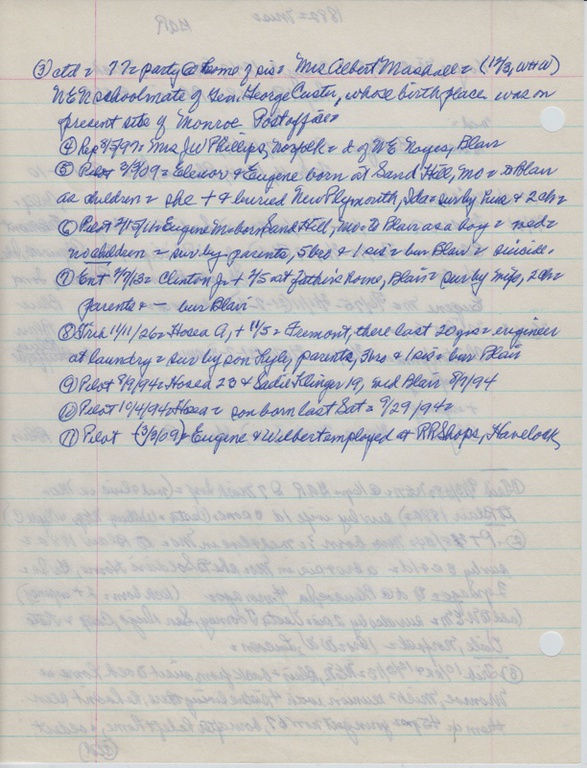 ③ ctd = 77 = party @ home of sis = Mrs Albert Marshall = (12/3, WHW)
NEN schoolmate of Gen. George Custer, whose birthplace was on
present site of Monroe Postoffice =
④ Rep 8/5/97 = Mrs JW Phillips, Norfolk = d of NE Noyes, Blair
⑤ Pilot 3/3/09 = Eleanor & Eugene born at Sand Hill, Mo = to Blair
as children = she + & buried New Plymouth, Ida = sur by hus & 2 ch =
⑥ Pilot 2/15/11 = Eugene M. born Sand Hill, Mo = to Blair as a boy = ned =
no children = sur by parents, 5 bro & 1 sis = bur Blair = suicide.
⑦ Ent = Clinton Jr + 2/5 at father's home, Blair = sur by wife, 2 ch =
parents = — bur Blair
⑧ Trib 11/11/26 = Hosea A, + 11/5 = Fremont, there last 20 yrs = engineer
at laundry = sur by son Lyle, parents, 3 bro & 1 sis = bur Blair
⑨ Pilot 8/9/94 = Hosea 23 & Sadie Klinger 19, md Blair 8/7/94
⑩ Pilot 10/4/94 = Hosea = son born last Sat = 9/29/94 =
⑪ Pilot (3/3/09) = Eugene & Wilbert employed at RR Shops, Havelock,